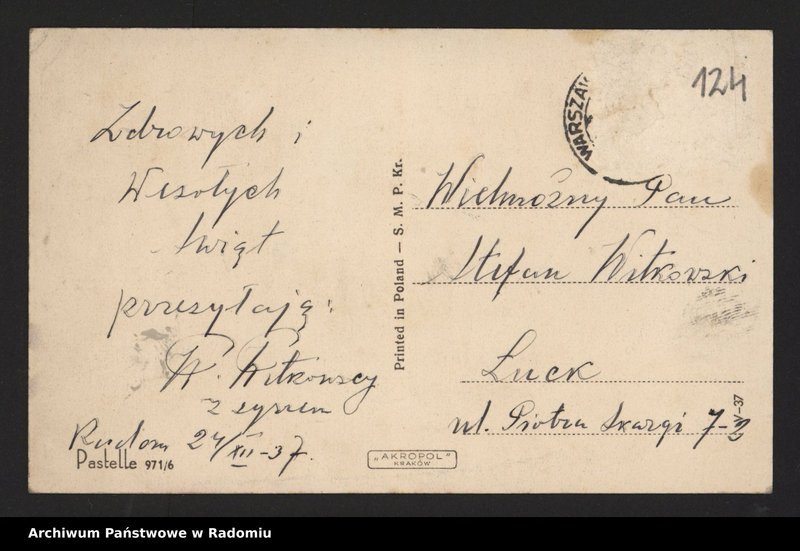 124
WARSZAW
Zdrowych i
Wesołych
świąt
przesyłają:
W. Witkowscy
z synem
Radom 24/XII-37.
Pastelle 971/6
Printed in Poland — S. M. P. Kr.
"AKROPOL"
KRAKÓW
Wielmożny Pan
Stefan Witkowski
Łuck
ul. Piotra Skargi 7-
V-37
Archiwum Państwowe w Radomiu